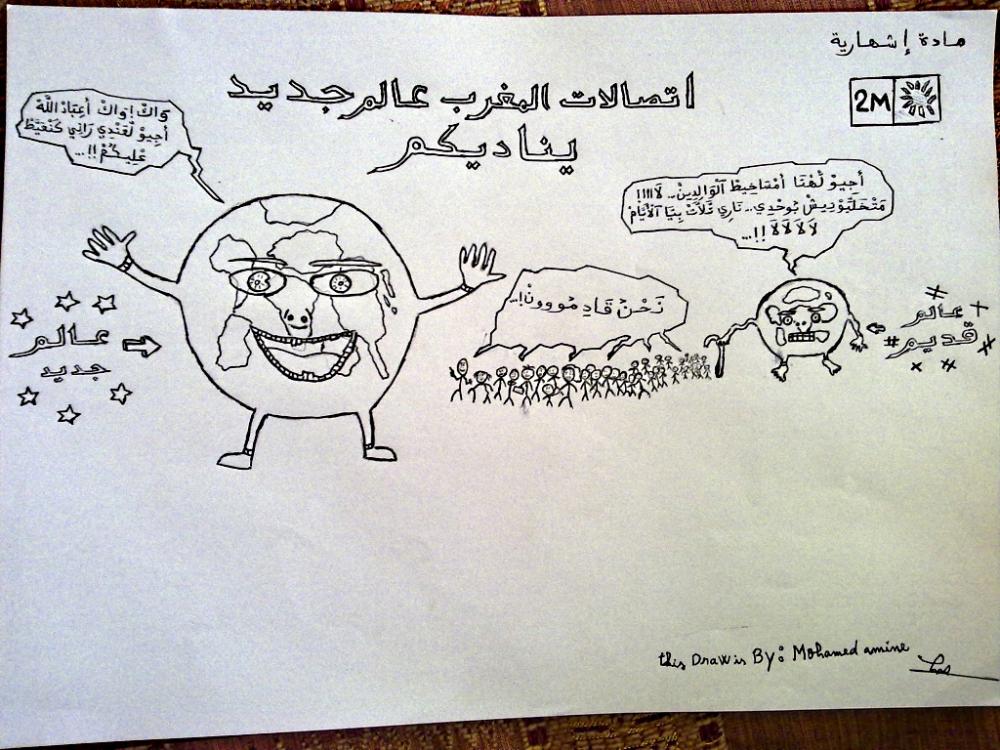 مادة إشهارية
2M
اتصالات المغرب عالم جديد
يناديكم
وَاكْ! وَاكْ أعِبَادْ اللَّهْ
أجِيوْ لْعَنْدِي رَانِي كَنْعَيَّطْ
عْلِيكُمْ!!...
أجِيوْ لْهْنَا أمْسَاخِيطْ الْوَالِدِينْ.. لَا!!!!
مَتْخَلِّيوْنِيشْ بُوحْدِي.. نَارِي تْلَاتْ بِيَّا الأيَّامْ
لَا لَا لَا لَا!!...
نَحْنُ قَادِمُووونْ!...
عالم
جديد
عالم
قديم
this Draw is By: Mohamed amine